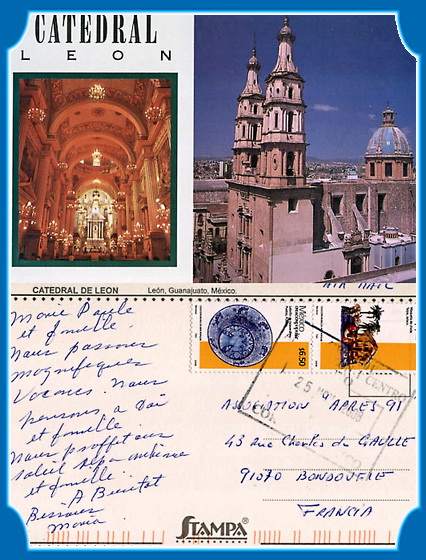 CATEDRAL
LEON
AIR MAIL
CATEDRAL DE LEON
León, Guanajuato, México.
et famille.
Nous passons
magnifiques
Vacances. Nous
pensons a Toi
et famille
Nous proffitons
soleil
et famille..
A Bientot
Bissous
Maria
México
$6.50
25
CENTRO
ASSOCIATION APRES 91
43 Rue Charles du GAULLE
91070 BONDOUFLE
FRANCIA
STAMPA